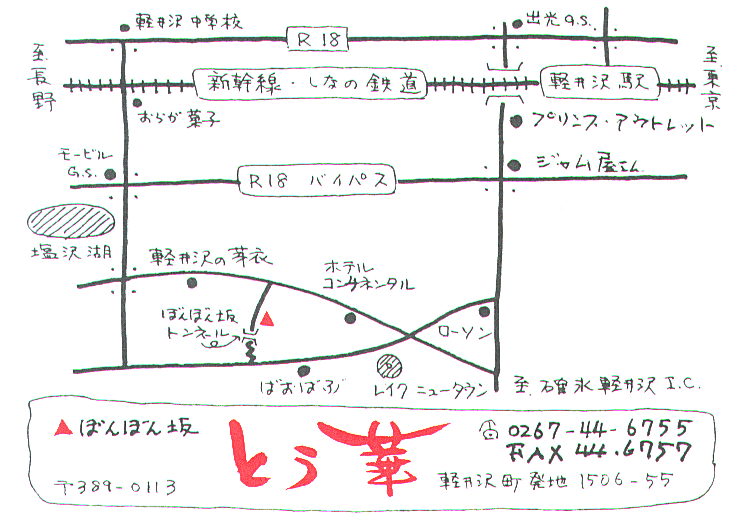 軽井沢中学校
R18
出光G.S.
至長野
新幹線・しなの鉄道
軽井沢駅
至東京
おらが菓子
プリンス・アウトレット
モービル
G.S.
R18 バイパス
ジャム屋さん
塩沢湖
軽井沢の芽衣
ホテル
コンチネンタル
ぼんぼん坂
トンネール
ローソン
ばおばぶ
レイクニュータウン
至 碓氷軽井沢 I.C.
▲ぼんぼん坂
とう華
0267-44-6755
FAX 44.6757
〒389-0113
軽井沢町発地1506-55